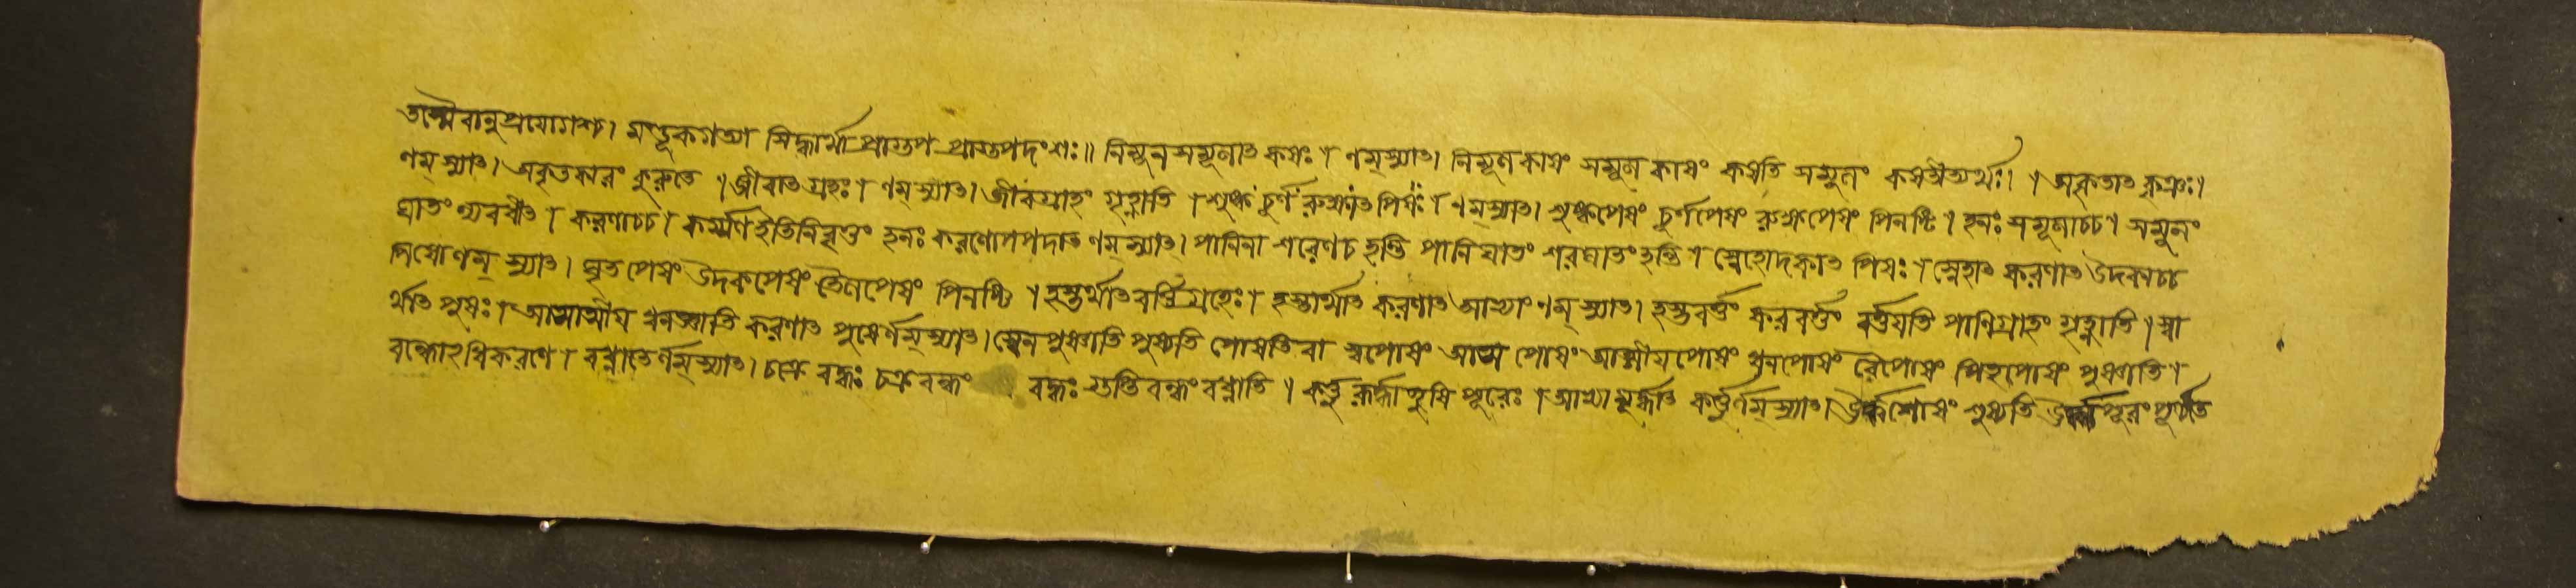 তস্মৈবানুপ্রযোগশ্চ। মণ্ডূকগত্যা সিদ্ধার্থা প্রাগুপ প্রাগুপদংশঃ॥ নিমূল সমূলাৎ কষঃ। ণম্ স্যাৎ। নিমূলকাষং সমূলকাষং কষতি সমূলং কষতীত্যর্থঃ। । অকৃতাৎ কৃঞঃ।
ণম্ স্যাৎ। অকৃতকারং কুরুতে । জীবাৎ গ্রহঃ। ণম্ স্যাৎ। জীবগ্রাহং গৃহ্ণাতি । শুষ্ক চূর্ণ রুক্ষাৎ পিষঃ। ণম্ স্যাৎ। শুষ্কপেষং চূর্ণপেষং রুক্ষপেষং পিনষ্টি । হনঃ সমূলাচ্চ। সমূলং
ঘাতং ন্যবধীৎ । করণাচ্চ। কর্ম্মণি ইতি নিবৃত্তং হনঃ করণোপপদাৎ ণম্ স্যাৎ। পানিনা শরেণ চ হন্তি পানিঘাতং শরঘাতং হন্তি। স্নেহোদকাৎ পিষঃ। স্নেহাৎ করণাৎ উদকাচ্চ
পিষো ণম্ স্যাৎ। ঘৃতপেষং উদকপেষং তৈলপেষং পিনষ্টি । হস্তার্থাৎ বর্ত্তিগ্রহেঃ। হস্তার্থাৎ করণাৎ আভ্যাং ণম্ স্যাৎ। হস্তবর্ত্তং করবর্ত্তং বর্ত্তযতি পানিগ্রাহং গৃহ্ণাতি। স্বা
র্থাৎ পুষঃ। আত্মাত্মীয ধনজ্ঞাতি করণাৎ পুষের্ণম্ স্যাৎ। স্বেন পুষ্ণাতি পুষ্যতি পোষতি বা স্বপোষং আত্মপোষং আত্মীযপোষং ধনপোষং রৈপোষং পিতৃপোষং পুষ্ণাতি।
বন্ধোঽধিকরণে। বধ্নাতের্ণম্ স্যাৎ। চক্রে বদ্ধঃ চক্রবন্ধং বদ্ধঃ গুপ্তিবন্ধং বধ্নাতি । কর্ত্তুরূর্দ্ধাৎ শুষি পূরেঃ । আভ্যামূর্দ্ধাৎ কর্ত্তুর্ণম্ স্যাৎ। ঊর্দ্ধশোষং শুষ্যতি ঊর্দ্ধপূরং পূর্যতে